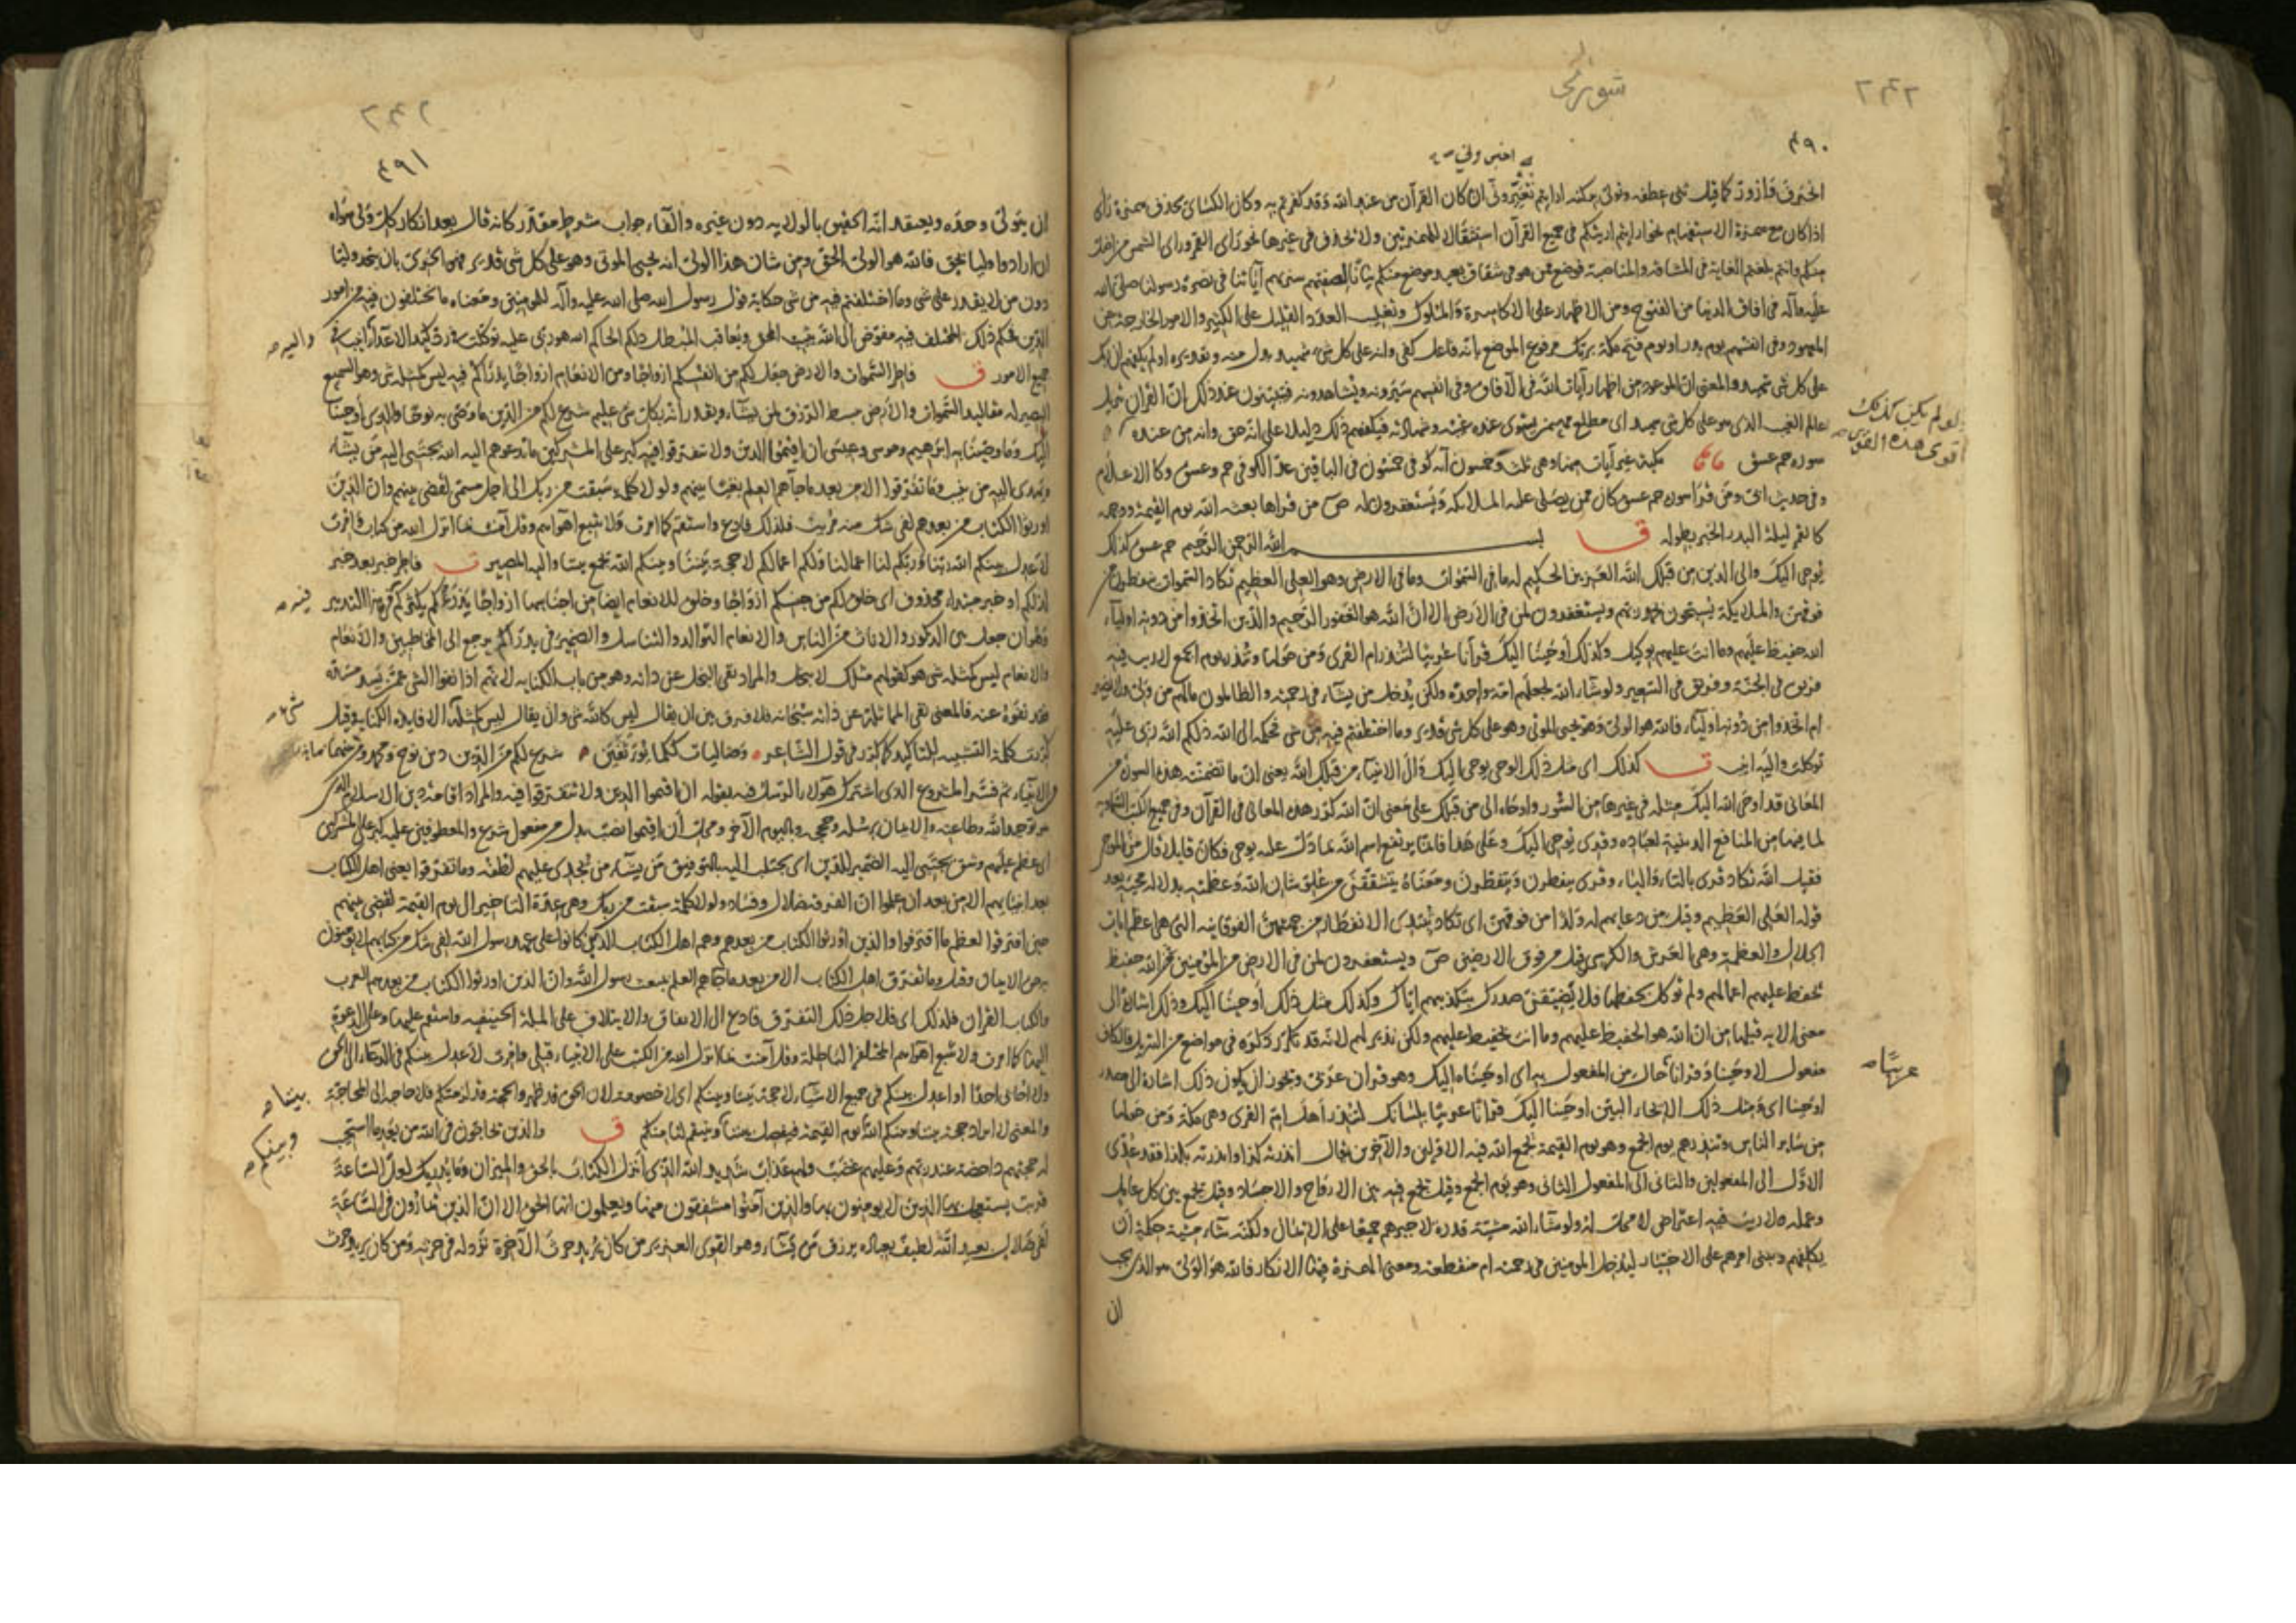 شورى
٤٩٠
انحرف وازورّ كما قيل ثنى عطفه وتولّى بركنه ارايتم ان كان القرآن من عند الله وقد كفرتم به وكان الكسائى يحذف همزة راى
اذا كان مع همزة الاستفهام نحو ارايتم اريتكم فى جميع القرآن استثقالا للهمزتين ولا تحذف فى غيرها نحو راى القمر وراى الشمس
منكم وانتم بلغتم الغاية فى المشاقة والمناصبة فوضع ممّن هو فى شقاق بعيد موضع منكم بيانا لصفتهم سنريهم آياتنا فى نصرة رسولنا صلى الله
عليه وآله فى افاق الدنيا من الفتوح ومن الاظهار على الاكاسرة والملوك وتغليب العدد القليل على الكثير والامور الخارجة عن
المعهود وفى انفسهم يوم بدر او يوم فتح مكة بربّك مرفوع الموضع بانه فاعل كفى وانه على كل شىء شهيد بدل منه وتقديره اولم يكفهم ان ربك
على كل شى شهيد والمعنى ان الموعود من اظهار آيات الله فى الآفاق وفى انفسهم سيرونه ويشاهدونه فيتبينون عند ذلك ان القرآن تنزيل
عالم الغيب الذى هو على كل شى شهيد اى مطلع مهيمن يستوى عنده غيبه وشهادته فيكفيهم ذلك دليلا على انه حق وانه من عنده
ولو لم يكن كذلك
سورة حم عسق مكية غير آيات منها وهى ثلث وخمسون آية كوفى خمسون فى الباقين عدّ الكوفى حم وعسق وكالاعلام
وفى حديث ابىّ ومن قرا سورة حم عسق كان ممن يصلى عليه الملائكة ويستغفرون له ص من قراها بعثه الله يوم القيمة ووجهه
كالقمر ليلة البدر الخبر بطوله ق بسم الله الرحمن الرحيم حم عسق كذلك
يوحى اليك والى الذين من قبلك الله العزيز الحكيم له ما فى السموات وما فى الارض وهو العلى العظيم تكاد السموات يتفطرن من
فوقهن والملائكة يسبّحون بحمد ربهم ويستغفرون لمن فى الارض الا ان الله هو الغفور الرحيم والذين اتخذوا من دونه اولياء
الله حفيظ عليهم وما انت عليهم بوكيل وكذلك اوحينا اليك قرآنا عربيا لتنذر ام القرى ومن حولها وتنذر يوم الجمع لا ريب فيه
فريق فى الجنة وفريق فى السعير ولو شاء الله لجعلهم امة واحدة ولكن يدخل من يشاء فى رحمته والظالمون ما لهم من ولى ولا نصير
ام اتخذوا من دونه اولياء فالله هو الولى وهو يحيى الموتى وهو على كل شى قدير وما اختلفتم فيه من شى فحكمه الى الله ذلكم الله ربى عليه
توكلت واليه انيب ق كذلك اى مثل ذلك الوحى يوحى اليك والى الانبياء من قبلك الله يعنى ان ما تضمنته هذه السورة من
المعانى قد اوحى الله اليك مثله فى غيرها من السور واوحاه الى من قبلك على معنى ان الله كرر هذه المعانى فى القرآن وفى جميع الكتب السماوية
لما فيها من المنافع الدينية لعباده وقرى يوحى اليك وعلى هذا فانما يرتفع اسم الله بما دلّ عليه يوحى فكان قايلا قال من الموحى
فقيل الله تكاد قرى بالتاء والياء وقرى ينفطرن ويتفطرن ومعناه يتشققن من علوّ شان الله وعظمته يدل له مجيئه بعد
قوله العلى العظيم وقيل من دعايهم له ولدا من فوقهن اى تكاد يبتدى الانفطار من جهتهن الفوقانية التى هى اعظم ايات
الجلال والعظمة وهى العرش والكرسى وقيل من فوق الارضين ص ويستغفرون لمن فى الارض من المؤمنين الله حفيظ
يحفظ عليهم اعمالهم ولم توكل بحفظها فلا يضيقنّ صدرك بتكذيبهم اياك وكذلك مثل ذلك اوحينا اليك وذلك اشارة الى
معنى الاية قبلها من ان الله هو الحفيظ عليهم وما انت بحفيظ عليهم ولكن نذير لهم لانه قد تكرر ذكره فى مواضع من التنزيل والكاف
مفعول لاوحينا وقرانا حال من المفعول به اى اوحيناه اليك وهو قران عربى ويجوز ان يكون ذلك اشارة الى مصدر
عربيّا
اوحينا اى ومثل ذلك الايحاء البيّن اوحينا اليك قرآنا عربيا بلسانك لتنذر اهل ام القرى وهى مكة ومن حولها
من ساير الناس وتنذرهم يوم الجمع وهو يوم القيمة يجمع الله فيه الاولين والآخرين يقال انذرته كذا وانذرته بكذا فقد عدّى
الاوّل الى المفعولين والثانى الى المفعول الثانى وهو يوم الجمع وقيل يجمع فيه بين الارواح والاجساد وقيل يجمع بين كل عامل
وعمله ولا ريب فيه اعتراض لا محل له ولو شاء الله مشيّة قدرة لاجبرهم جميعا على الايمان ولكنه شاء مشيّة حكمة ان
يكلّفهم وبنى امرهم على الاختيار ليدخل المومنين فى رحمته ام منقطعة ومعنى الهمزة فيها الانكار فالله هو الولى هو الذى يجب
ان
٤٩١
ان يتولّى وحده ويعتقد انه الحقيق بالولاية دون غيره والفاء جواب شرط مقدر كانه قال بعد انكار كل ولى سواه
ان ارادوا وليا بحق فالله هو الولى الحق ومن شان هذا الولى انه يحيى الموتى وهو على كل شى قدير فهو الحقوق بان يتخذ وليا
دون من لا يقدر على شى وما اختلفتم فيه من شى حكاية قول رسول الله صلى الله عليه وآله للمومنين ومعناه ما تختلفون فيه من امور
الدين فحكم ذلك المختلف فيه مفوّض الى الله يثيب المحق ويعاقب المبطل ذلكم الحاكم الله هو ربى عليه توكلت فى ردّ كيد الاعداء
واليه
جميع الامور ق فاطر السموات والارض جعل لكم من انفسكم ازواجا ومن الانعام ازواجا يذرؤكم فيه ليس كمثله شى وهو السميع
البصير له مقاليد السموات والارض يبسط الرزق لمن يشاء ويقدر انه بكل شى عليم شرع لكم من الدين ما وصّى به نوحا والذى اوحينا
اليك وما وصّينا به ابرهيم وموسى وعيسى ان اقيموا الدين ولا تتفرقوا فيه كبر على المشركين ما تدعوهم اليه الله يجتبى اليه من يشاء
ويهدى اليه من ينيب وما تفرقوا الا من بعد ما جاءهم العلم بغيا بينهم ولولا كلمة سبقت من ربك الى اجل مسمى لقضى بينهم وان الذين
اورثوا الكتاب من بعدهم لفى شك منه مريب فلذلك فادع واستقم كما امرت ولا تتبع اهواءهم وقل آمنت بما انزل الله من كتاب وامرت
لاعدل بينكم الله ربنا وربكم لنا اعمالنا ولكم اعمالكم لا حجة بيننا وبينكم الله يجمع بيننا واليه المصير ق فاطر خبر بعد خبر
لذلكم او خبر مبتداء محذوف اى خلق لكم من جنسكم ازواجا وخلق للانعام ايضا من اجناسها ازواجا يذرؤكم يكثركم فى هذا التدبير
فيه
وهو ان جعل بين الذكور والاناث من الناس والانعام التوالد والتناسل والضمير فى يذرؤكم يرجع الى المخاطبين والانعام
والانعام ليس كمثله شى هو كقولهم مثلك لا يبخل والمراد نفى البخل عن ذاته وهو من باب الكناية لانهم اذا نفوا الشى عمّن يسدّ مسدّه
فقد نفوه عنه فالمعنى نفى المماثلة عن ذاته سبحانه فلا فرق بين ان يقال ليس كالله شى وان يقال ليس كمثله الا فايدة الكناية وقيل
شى
كررت كلمة التشبيه للتاكيد كما كرر فى قول الشاعر وصاليات ككما يؤثفين شرع لكم من الدين دين نوح ومحمد ومن بينهما
من الانبياء ثم فسّر المشروع الذى اشترك هؤلاء الرسل فيه بقوله ان اقيموا الدين ولا تتفرقوا فيه والمراد اقامة دين الاسلام الذى
هو توحيد الله وطاعته والايمان برسله وحججه وباليوم الآخر ومحل ان اقيموا نصب بدل من مفعول شرع والمعطوفين عليه كبر على المشركين
اى عظم عليهم وشق يجتبى اليه الضمير للدين اى يجتلب اليه بالتوفيق من يشاء من يجدى عليهم لطفه وما تفرقوا يعنى اهل الكتاب
بعد انبيائهم الا من بعد ان علموا ان الفرقة ضلال وفساد ولولا كلمة سبقت من ربك وهى عدة التاخير الى يوم القيمة لقضى بينهم
حين افترقوا لعظم ما اقترفوا والذين اورثوا الكتاب من بعدهم وهم اهل الكتاب الذين كانوا على عهد رسول الله لفى شك من كتابهم لا يومنون
به حق الايمان وقيل وما تفرق اهل الكتاب الا من بعد ما جاءهم العلم ببعث رسول الله وان الذين اورثوا الكتاب من بعدهم العرب
والكتاب القران فلذلك اى فلاجل ذلك التفرق فادع الى الاتفاق والايتلاف على الملة الحنيفية واستقم عليها وعلى الدعوة
اليها كما امرت ولا تتبع اهواءهم المختلفة الباطلة وقل آمنت بما انزل الله من الكتب على الانبياء قبلى وامرت لاعدل بينكم فى الدعاء الى الحق
ولا احابى احدا او اعدل بينكم فى جميع الاشياء لا حجة بيننا وبينكم اى لا خصومة لان الحق قد ظهر والحجة قد لزمتكم فلا حاجة الى المحاجة
بيننا
وبينكم
والمعنى لا ايراد حجة بيننا وبينكم الله يوم القيمة فيفصل بيننا وينتقم لنا منكم ق والذين يحاجون فى الله من بعد ما استجيب
له حجتهم داحضة عند ربهم وعليهم غضب ولهم عذاب شديد الله الذى انزل الكتاب بالحق والميزان وما يدريك لعل الساعة
قريب يستعجل بها الذين لا يومنون بها والذين آمنوا مشفقون منها ويعلمون انها الحق الا ان الذين يمارون فى الساعة
لفى ضلال بعيد الله لطيف بعباده يرزق من يشاء وهو القوى العزيز من كان يريد حرث الآخرة نزد له فى حرثه ومن كان يريد حرث